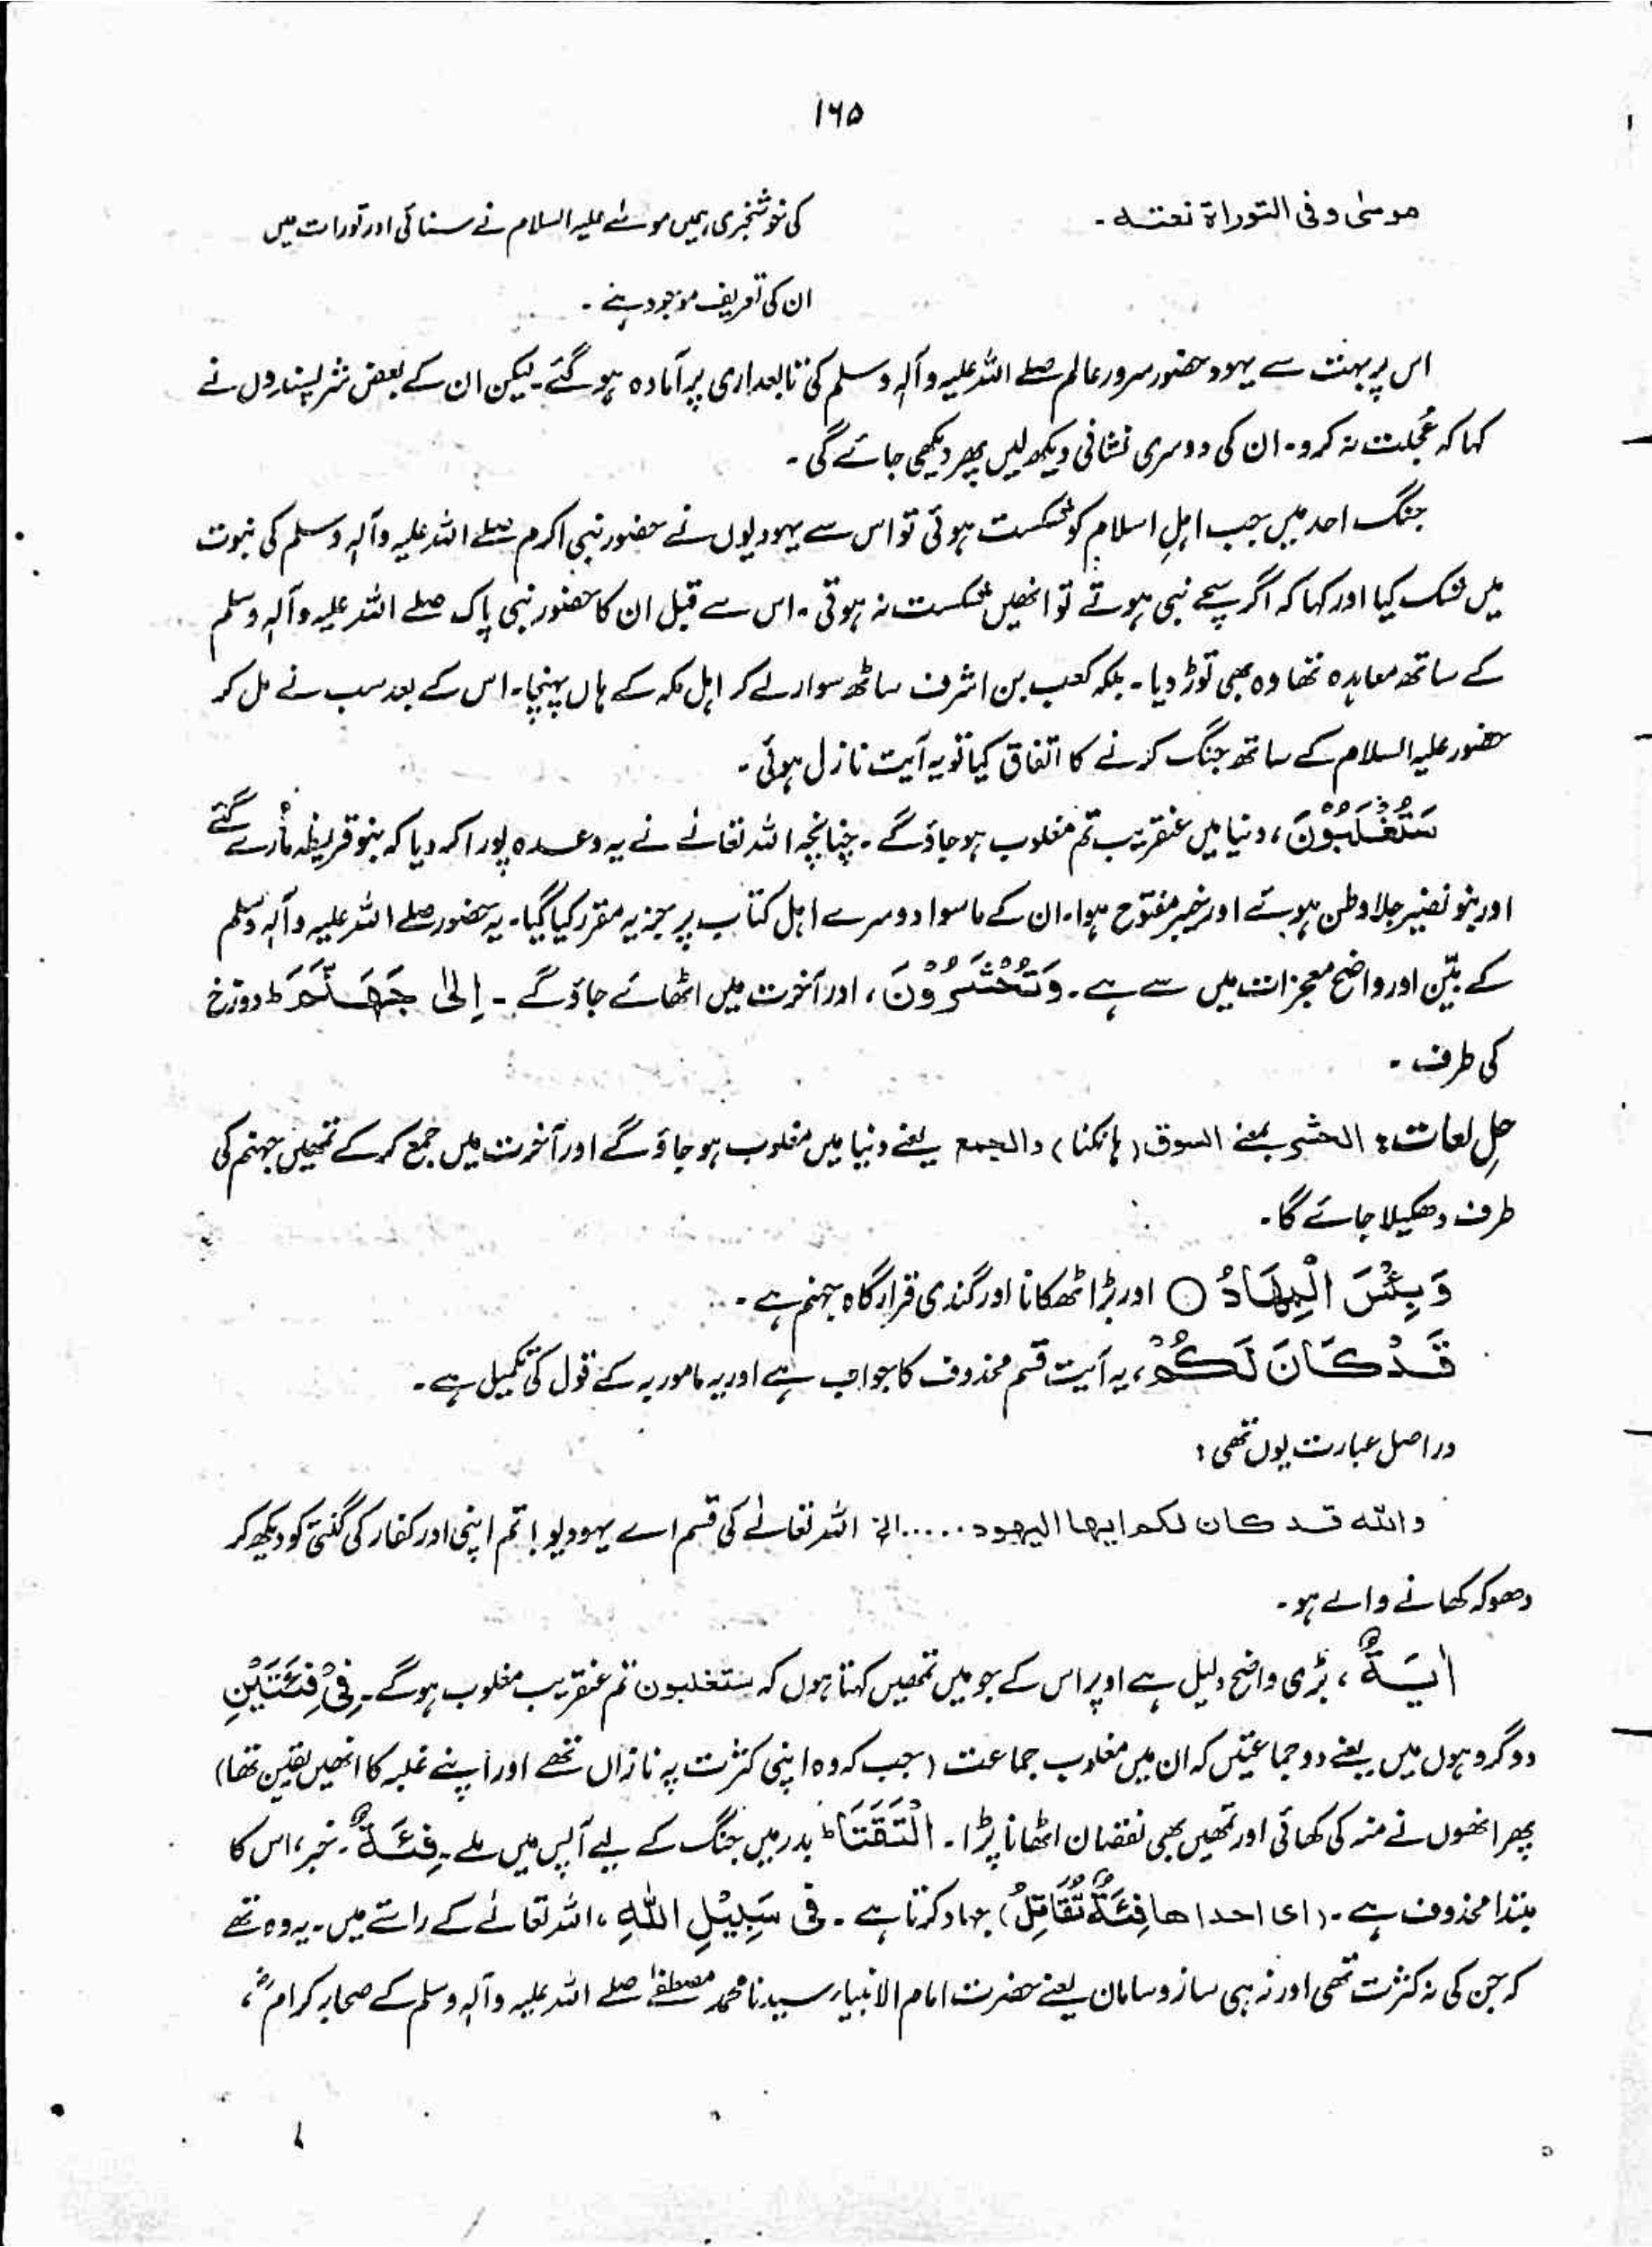 ۱۶۵
موسیٰ وفی التوراۃ نعتہ۔
کی خوشخبری ہمیں موسےٰ علیہ السلام نے سنائی اور تورات میں
ان کی تعریف موجود ہے۔
اس پر بہت سے یہود حضور سرور عالم صلے اللہ علیہ وآلہٖ وسلم کی تابعداری پر آمادہ ہو گئے۔ لیکن ان کے بعض شرپسندوں نے
کہا کہ عُجلت نہ کرو۔ ان کی دوسری نشانی دیکھ لیں پھر دیکھی جائے گی۔
جنگ احد میں جب اہلِ اسلام کو شکست ہوئی تو اس سے یہودیوں نے حضور نبی اکرم صلے اللہ علیہ وآلہٖ وسلم کی نبوت
میں شک کیا اور کہا کہ اگر سچے نبی ہوتے تو انھیں شکست نہ ہوتی۔ اس سے قبل ان کا حضور نبی پاک صلے اللہ علیہ وآلہٖ وسلم
کے ساتھ معاہدہ تھا وہ بھی توڑ دیا۔ بلکہ کعب بن اشرف ساٹھ سوار لے کر اہل مکہ کے ہاں پہنچا۔ اس کے بعد سب نے مل کر
حضور علیہ السلام کے ساتھ جنگ کرنے کا اتفاق کیا تو یہ آیت نازل ہوئی۔
سَتُغْلَبُوْنَ، دنیا میں عنقریب تم مغلوب ہو جاؤ گے۔ چنانچہ اللہ تعالےٰ نے یہ وعدہ پورا کر دیا کہ بنو قریظہ مارے گئے
اور بنو نضیر جلا وطن ہوئے اور خیبر مفتوح ہوا۔ ان کے ماسوا دوسرے اہل کتاب پر جزیہ مقرر کیا گیا۔ یہ حضور صلے اللہ علیہ وآلہٖ وسلم
کے بیّن اور واضح معجزات میں سے ہے۔ وَتُحْشَرُوْنَ، اور آخرت میں اٹھائے جاؤ گے۔ اِلیٰ جَهَنَّمَ ؕ دوزخ
کی طرف۔
حلِ لغات: الحشر بمعنے السوق (ہانکنا) والجمع یعنے دنیا میں مغلوب ہو جاؤ گے اور آخرت میں جمع کر کے تمھیں جہنم کی
طرف دھکیلا جائے گا۔
وَبِئْسَ الْمِهَادُ ○ اور بُرا ٹھکانا اور گندی قرارگاہ جہنم ہے۔
قَدْ كَانَ لَكُمْ، یہ آیت قسم محذوف کا جواب ہے اور یہ مامور بہ کے قول کی تکمیل ہے۔
در اصل عبارت یوں تھی:
واللہ قد کان لکم ایہا الیہود ..... الخ اللہ تعالےٰ کی قسم اے یہودیو! تم اپنی اور کفار کی گنتی کو دیکھ کر
دھوکہ کھانے والے ہو۔
اٰيَةٌ، بڑی واضح دلیل ہے اوپر اس کے جو میں تمھیں کہتا ہوں کہ ستغلبون تم عنقریب مغلوب ہو گے۔ فِیْ فِئَتَيْنِ
دو گروہوں میں یعنے دو جماعتیں کہ ان میں مغلوب جماعت (جب کہ وہ اپنی کثرت پہ نازاں تھے اور اپنے غلبہ کا انھیں یقین تھا)
پھر انھوں نے منہ کی کھائی اور تمھیں بھی نقصان اٹھانا پڑا۔ الْتَقَتَا ؕ بدر میں جنگ کے لیے آپس میں ملے۔ فِئَةٌ۔ خبر، اس کا
مبتدا محذوف ہے۔ (ای احداھا فِئَةٌ تُقَاتِلُ) جہاد کرتا ہے۔ فِی سَبِيْلِ اللّٰهِ، اللہ تعالےٰ کے راستے میں۔ یہ وہ تھے
کہ جن کی نہ کثرت تھی اور نہ ہی ساز و سامان یعنے حضرت امام الانبیاء سیدنا محمد مصطفےٰ صلے اللہ علیہ وآلہٖ وسلم کے صحابہ کرامؓ،